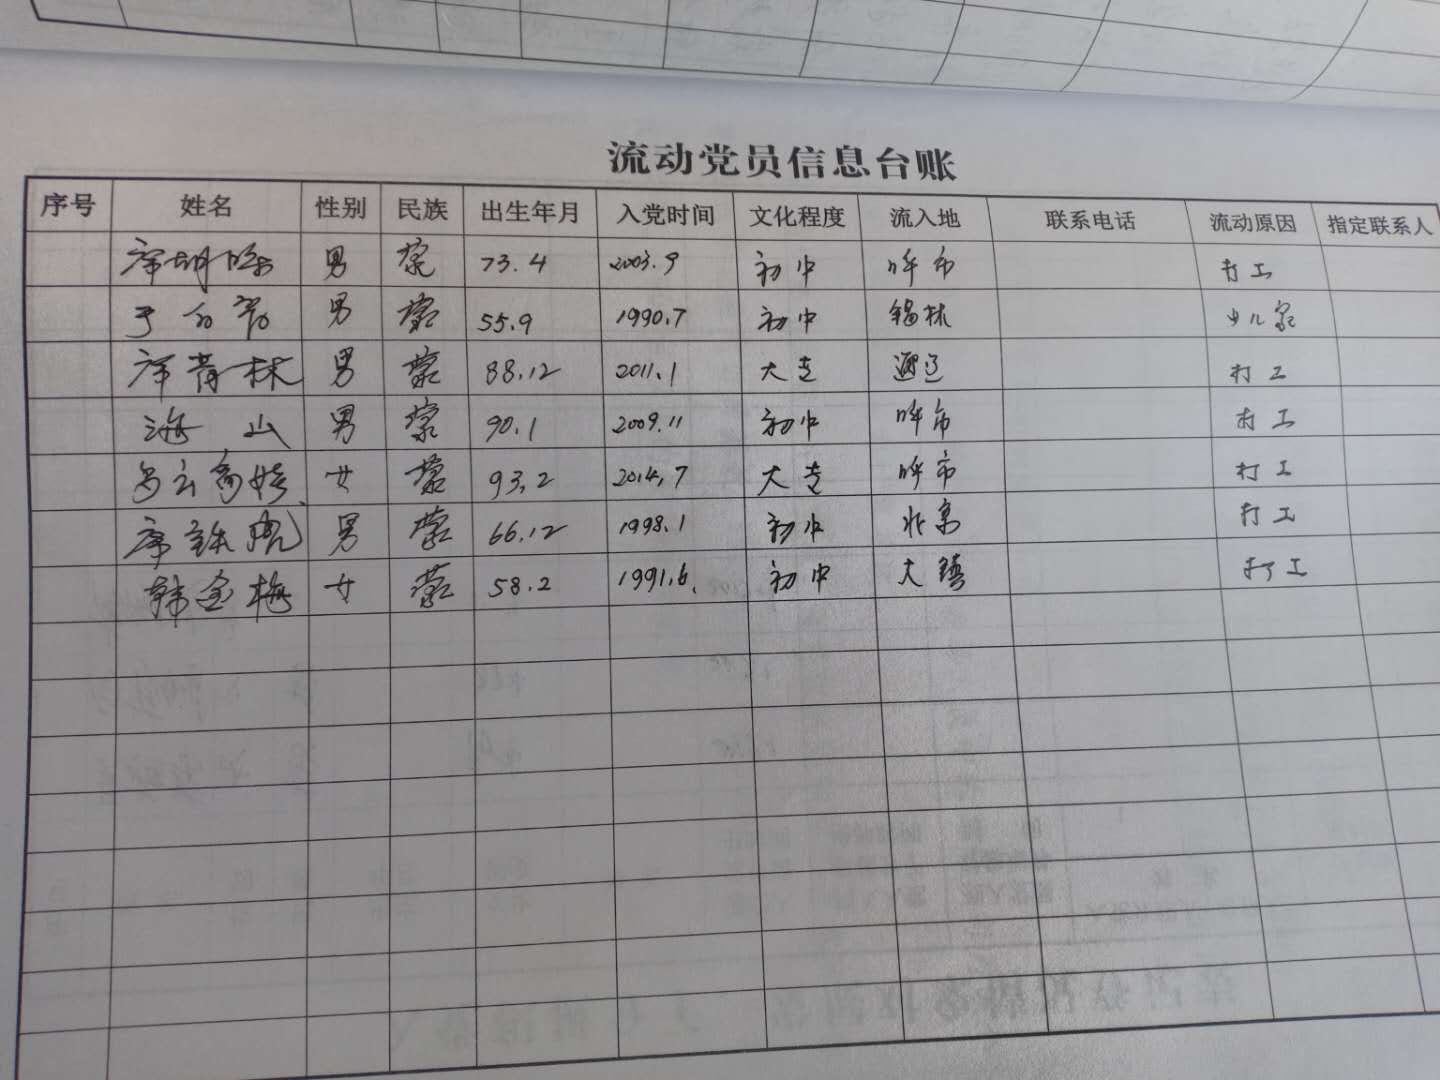 流动党员信息台账
序号 姓名 性别 民族 出生年月 入党时间 文化程度 流入地 联系电话 流动原因 指定联系人
男 蒙 73.4 2003.9 初中 呼市 打工
男 蒙 55.9 1990.7 初中 锡林
男 蒙 88.12 2011.1 大专 通辽 打工
海山 男 蒙 90.1 2009.11 初中 呼市 打工
女 蒙 93.2 2014.7 大专 呼市 打工
男 蒙 66.12 1998.1 初中 北京 打工
韩金梅 女 蒙 58.2 1991.6. 初中 大镇 打工